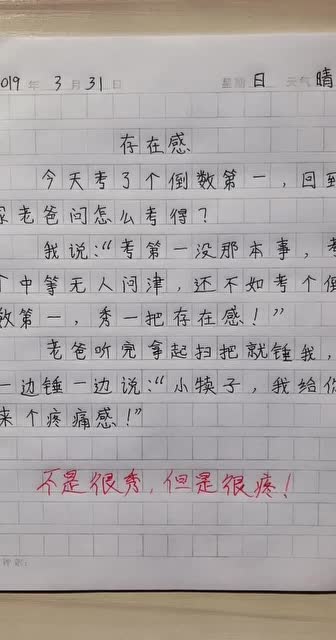 019 年 3 月 31 日 星期 日 天气 晴
存在感
今天考了个倒数第一，回到
老爸问怎么考得？
我说：“考第一没那本事，考
个中等无人问津，还不如考个倒
数第一，秀一把存在感！”
老爸听完拿起扫把就锤我，
一边锤一边说：“小犊子，我给你
来个疼痛感！”
不是很秀，但是很疼！